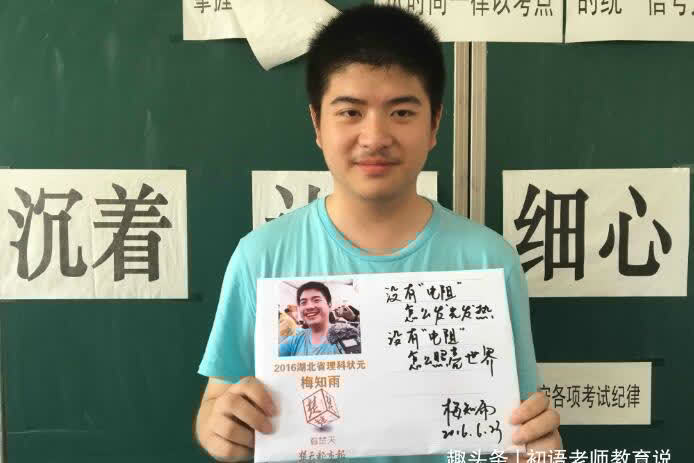 掌握
时间一律以考点
的统一信号
沉着
细心
没有"电阻"
怎么发光发热
没有"电阻"
怎么照亮世界
2016湖北省理科状元
梅知雨
看楚天
楚天都市报
梅知雨
2016.6.23
各项考试纪律
趣头条 | 初语老师教育说